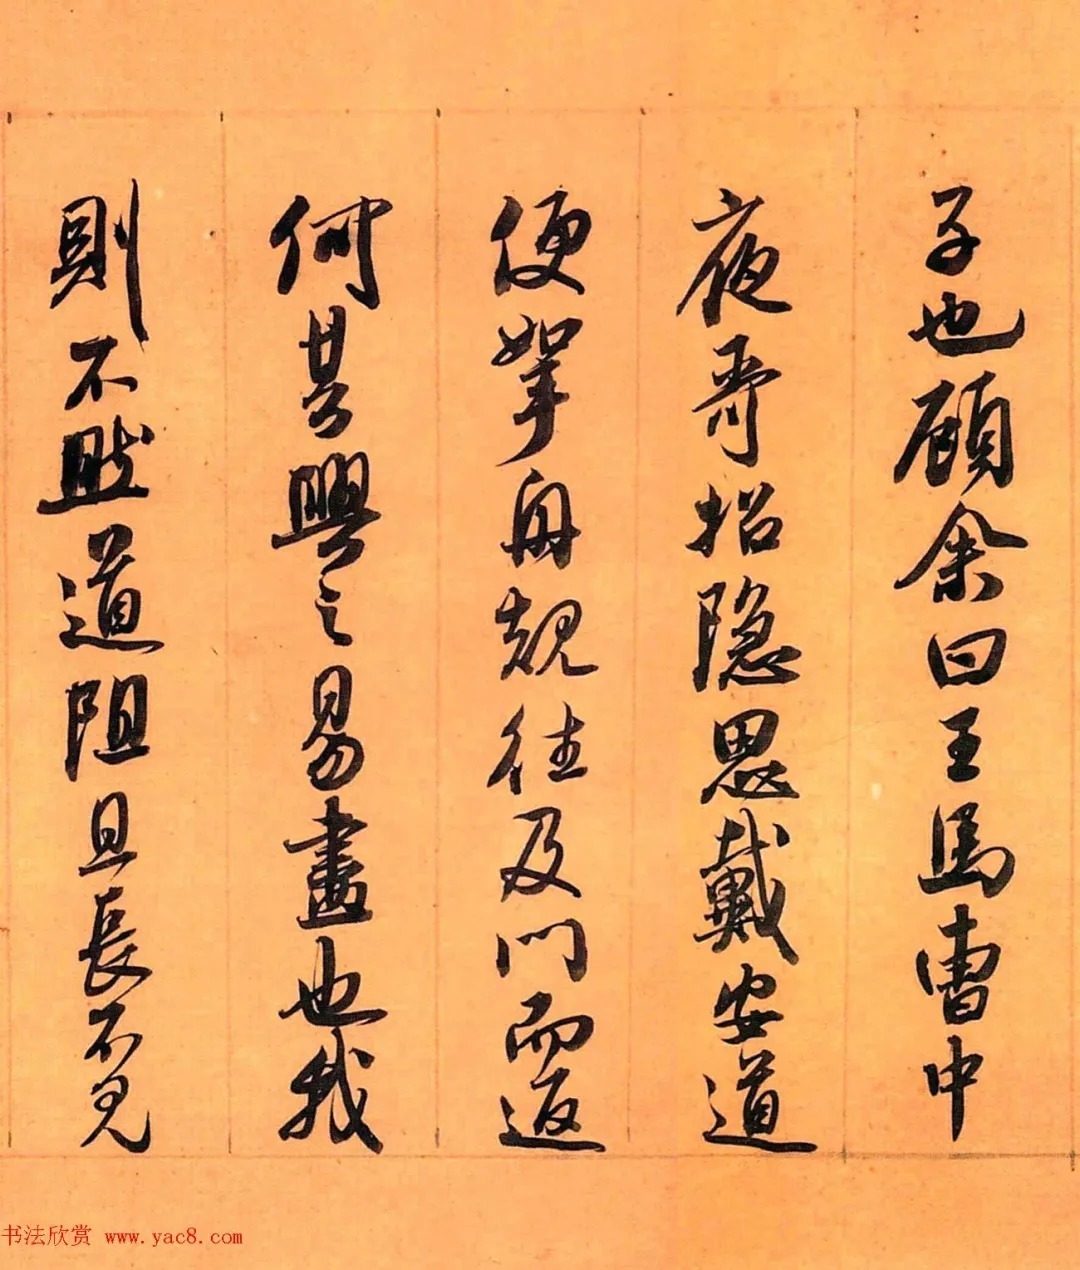 子也顾余曰王馬曹中
夜哥招隐思戴安道
便拏舟覘往及門而返
何其興之易盡也我
則不然道阻且長不見
书法欣赏 www.yac8.com